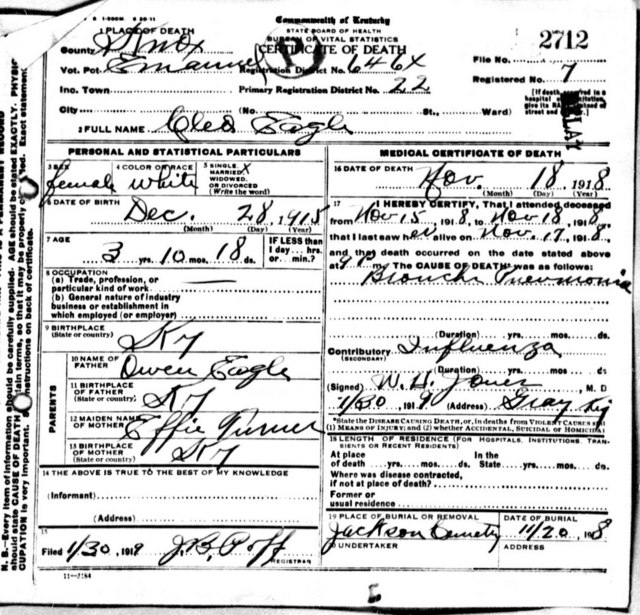 1-200M 6 20-11
Commonwealth of Kentucky
STATE BOARD OF HEALTH
BUREAU OF VITAL STATISTICS
CERTIFICATE OF DEATH
1 PLACE OF DEATH
County Knox
Vot. Pct. Emanuel Registration District No. 646X
Inc. Town Primary Registration District No. 22
City (No. St., Ward)
2712
File No.
Registered No. 7
[If death occurred in a hospital or institution, give its NAME instead of street and number.]
DELAY
2 FULL NAME Cleo Eagle
PERSONAL AND STATISTICAL PARTICULARS
3 SEX female
4 COLOR OR RACE white
5 SINGLE, X
MARRIED,
WIDOWED,
OR DIVORCED
(Write the word)
6 DATE OF BIRTH
Dec. 28, 1918
(Month) (Day) (Year)
7 AGE
3 yrs. 10 mos. 18 ds.
IF LESS than
1 day, ... hrs.
or ... min.?
8 OCCUPATION
(a) Trade, profession, or
particular kind of work
(b) General nature of industry
business or establishment in
which employed (or employer)
9 BIRTHPLACE
(State or country) Ky
PARENTS
10 NAME OF
FATHER Owen Eagle
11 BIRTHPLACE
OF FATHER
(State or country) Ky
12 MAIDEN NAME
OF MOTHER Effie Turner
13 BIRTHPLACE
OF MOTHER
(State or country) Ky
14 THE ABOVE IS TRUE TO THE BEST OF MY KNOWLEDGE
(Informant)
(Address)
15
Filed 1/30, 1919 J.B. Poff
REGISTRAR
11-3184
MEDICAL CERTIFICATE OF DEATH
16 DATE OF DEATH
Nov. 18 1918
(Month) (Day) (Year)
17 I HEREBY CERTIFY, That I attended deceased
from Nov 15, 1918, to Nov 18, 1918,
that I last saw her alive on Nov. 17, 1918,
and that death occurred on the date stated above
at m. The CAUSE OF DEATH was as follows:
Bronchi Pneumonia
(Duration) yrs. mos. ds.
Contributory Influenza
(SECONDARY)
(Duration) yrs. mos. ds.
(Signed) W. H. Jones, M. D
1/30, 1919. (Address) Gray, Ky
*State the DISEASE CAUSING DEATH, or, in deaths from VIOLENT CAUSES state
(1) MEANS OF INJURY; and (2) whether ACCIDENTAL, SUICIDAL or HOMICIDAL
18 LENGTH OF RESIDENCE (FOR HOSPITALS, INSTITUTIONS, TRANSIENTS OR RECENT RESIDENTS)
At place In the
of death yrs. mos. ds. State yrs. mos. ds.
Where was disease contracted,
if not at place of death?
Former or
usual residence
19 PLACE OF BURIAL OR REMOVAL
Jackson Cemetery
DATE OF BURIAL
11/20, 1918
20 UNDERTAKER
ADDRESS
N. B.-Every item of information should be carefully supplied. AGE should be stated EXACTLY. PHYSI-
should state CAUSE OF DEATH in plain terms, so that it may be properly classified. Exact statement
CUPATION is very important. See instructions on back of certificate.